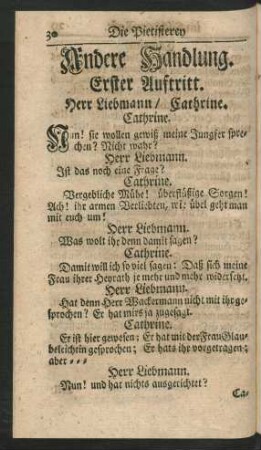 30 Die Pietisterey
Andere Handlung.
Erster Auftritt.
Herr Liebmann/ Cathrine.
Cathrine.
Nun! sie wollen gewiß meine Jungfer spre-
chen? Nicht wahr?
Herr Liebmann.
Ist das noch eine Frage?
Cathrine.
Vergebliche Mühe! überflüßige Sorgen!
Ach! ihr armen Verliebten, wie übel geht man
mit euch um!
Herr Liebmann.
Was wolt ihr denn damit sagen?
Cathrine.
Damit will ich so viel sagen: Daß sich meine
Frau ihrer Heyrath je mehr und mehr widersetzt.
Herr Liebmann.
Hat denn Herr Wackermann nicht mit ihr ge-
sprochen? Er hat mirs ja zugesagt.
Cathrine.
Er ist hier gewesen; Er hat mit der Frau Glau-
beleichtin gesprochen; Er hats ihr vorgetragen;
aber = = =
Herr Liebmann.
Nun! und hat nichts ausgerichtet?
Ca-